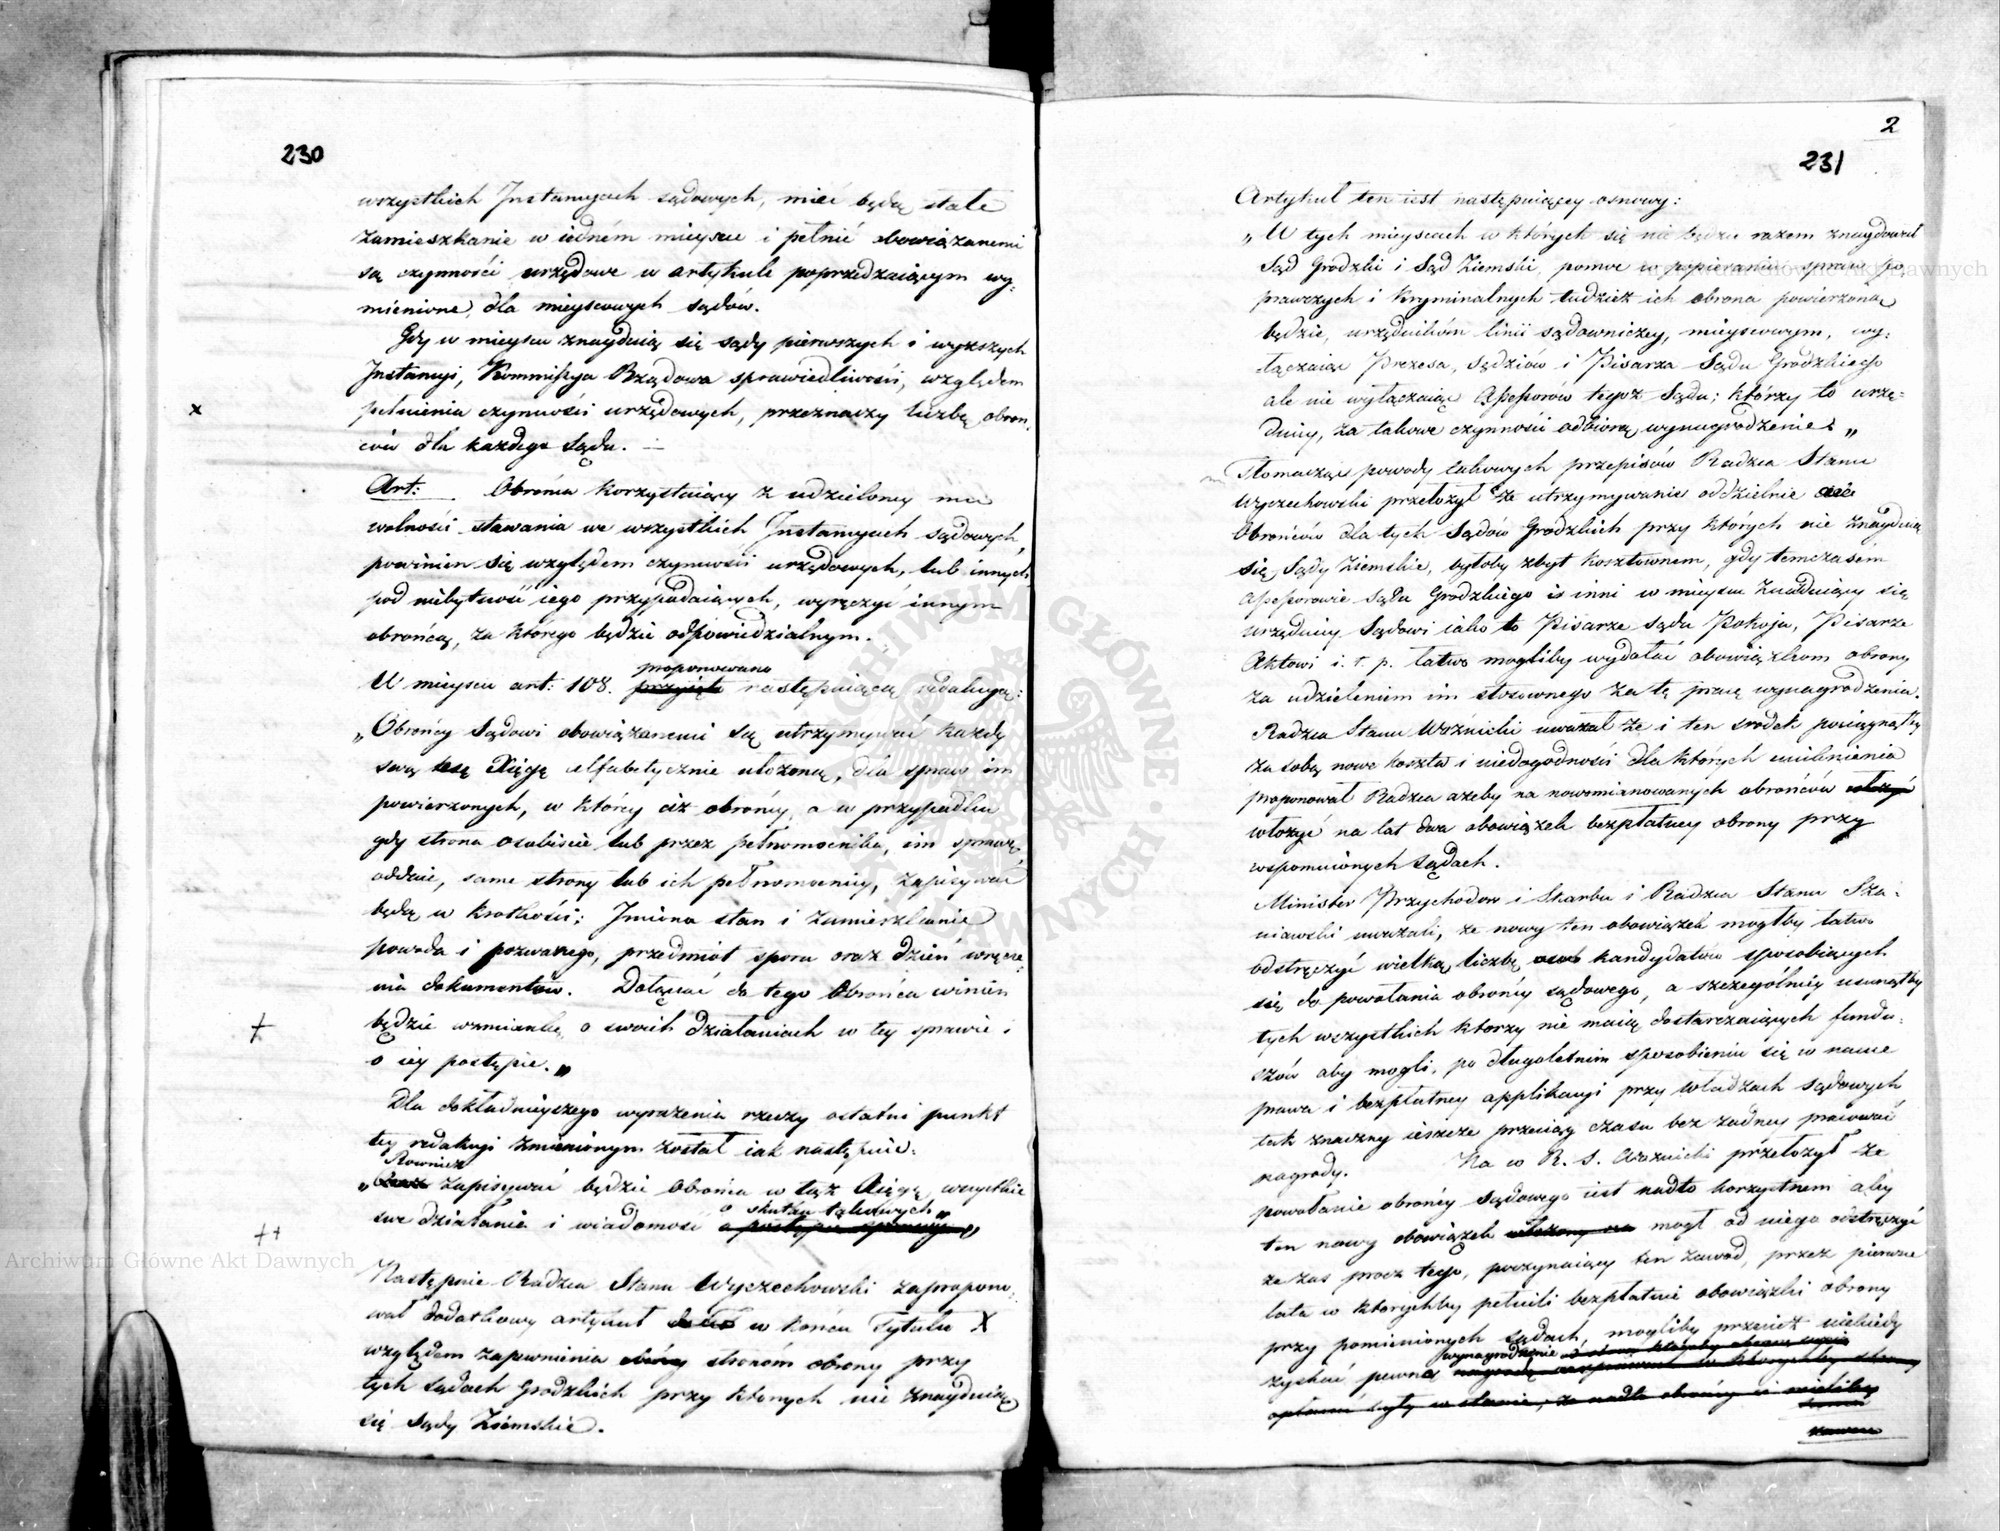 230
wszystkich Instancyach sądowych, mieć będą stałe
zamieszkanie w iedném mieyscu i pełnić obowiązanemi
są czynności urzędowe w artykule poprzedzaiącym wy-
mienione, dla mieyscowych sądów.
Gdy w mieyscu znayduią się sądy pierwszych i wyższych
Instancyi, Kommissya Rządowa sprawiedliwości, względem
pełnienia czynności urzędowych, przeznaczy liczbę obroń-
x
ców dla każdego Sądu. —
Art: Obrońca korzystaiący z udzieloney mu
wolności stawania we wszystkich Instancyach sądowych,
powinien się względem czynności urzędowych, lub innych
pod niebytność iego przypadaiących, wyręczyć innym
obrońcą, za którego będzie odpowiedzialnym.
proponowano
W mieyscu art: 108. przyięto następuiącą redakcyą:
„Obrońcy Sądowi obowiązanemi są utrzymywać każdy
swą Xięgę alfabetycznie ułożoną, dla spraw im
powierzonych, w którey ciż obrońcy, a w przypadku
gdy strona osobiście lub przez pełnomocnika, im sprawę
oddaie, same strony lub ich pełnomocnicy, zapisywać
będą w krótkości; Imiona stan i zamieszkanie
powoda i pozwanego, przedmiot sporu oraz dzień wręcze-
nia dokumentów. Dołączać do tego Obrońca winien
będzie wzmiankę o swoich działaniach w tey sprawie i
+
o iey postępie.„
Dla dokładnieyszego wyrażenia rzeczy ostatni punkt
tey redakcyi zmienionym został iak następuie:
Rownież
„Oraz zapisywać będzie Obrońca w tąż Xięgę, wszystkie
o skutku takowych„
swe działanie i wiadomość o postępie sprawy„
++
Następnie Radzca Stanu Wyczechowski zapropono-
wał dodatkowy artykuł w końcu Tytułu X
względem zapewnienia stronom obrony przy
tych sądach Grodzkich przy których nie znayduią
się sądy Ziemskie.
2
231
Artykuł ten iest następuiącey osnowy:
„W tych mieyscach w których się nie będzie razem znaydował
Sąd Grodzki i Sąd Ziemski, pomoc w popieraniu spraw po-
prawczych i kryminalnych tudzież ich obrona powierzoną
będzie, urzędnikom linii sądowniczey, mieyscowym, wy-
łączaiąc Prezesa, Sędziów i Pisarza Sądu Grodzkiego
ale nie wyłączaiąc Assessorów tegoż Sądu; którzy to urzę-
dnicy, za takowe czynności odbiorą wynagrodzenie.„
Tłomacząc powody takowych przepisów Radzca Stanu
Wyczechowski przełożył że utrzymywanie oddzielnie
Obrońców dla tych Sądów Grodzkich przy których nie znayduią
się Sądy Ziemskie, byłoby zbyt kosztownem, gdy tymczasem
Assessorowie Sądu Grodzkiego i inni w mieyscu znayduiący się
urzędnicy Sądowi iako to Pisarze sądu Pokoju, Pisarze
Aktowi i. t. p. łatwo mogliby wydołać obowiązkom obrony
za udzieleniem im stosownego za tę pracę wynagrodzenia.
Radzca Stanu Woźnicki uważał że i ten srodek pociągnąłby
za sobą nowe koszta i niedogodności dla których uniknienia
proponował Radzca ażeby na nowomianowanych obrońców włożyć
włożyć na lat dwa obowiązek bezpłatney obrony przy
wspomnionych Sądach.
Minister Przychodów i Skarbu i Radzca Stanu Sza-
niawski uważali, że nowy ten obowiązek mogłby łatwo
odstręczyć wielką liczbę osob kandydatów sposobiących
się do powołania obrońcy sądowego, a szczególniey usunąłby
tych wszystkich ktorzy nie maią dostarczaiących fundu-
szów aby mogli, po długoletnim sposobieniu się w nauce
prawa i bezpłatney applikacyi przy władzach sądowych
tak znaczny ieszcze przeciąg czasu bez żadney pracować
nagrody. Na co R. S. Woźnicki przełożył że
powołanie obrońcy sądowego iest nadto korzystnem aby
ten nowy obowiązek włożony na mogł od niego odstręczyć
że zaś procz tego, poczynaiący ten zawód, przez pierwsze
lata w ktorychby pełnili bezpłatnie obowiązki obrony
przy pomienionych sądach, mogliby przecież niekiedy
wynagrodzenie
zyskać pewne